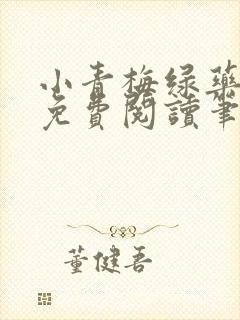 小青梅绿药
免費閱讀筆
董健吾